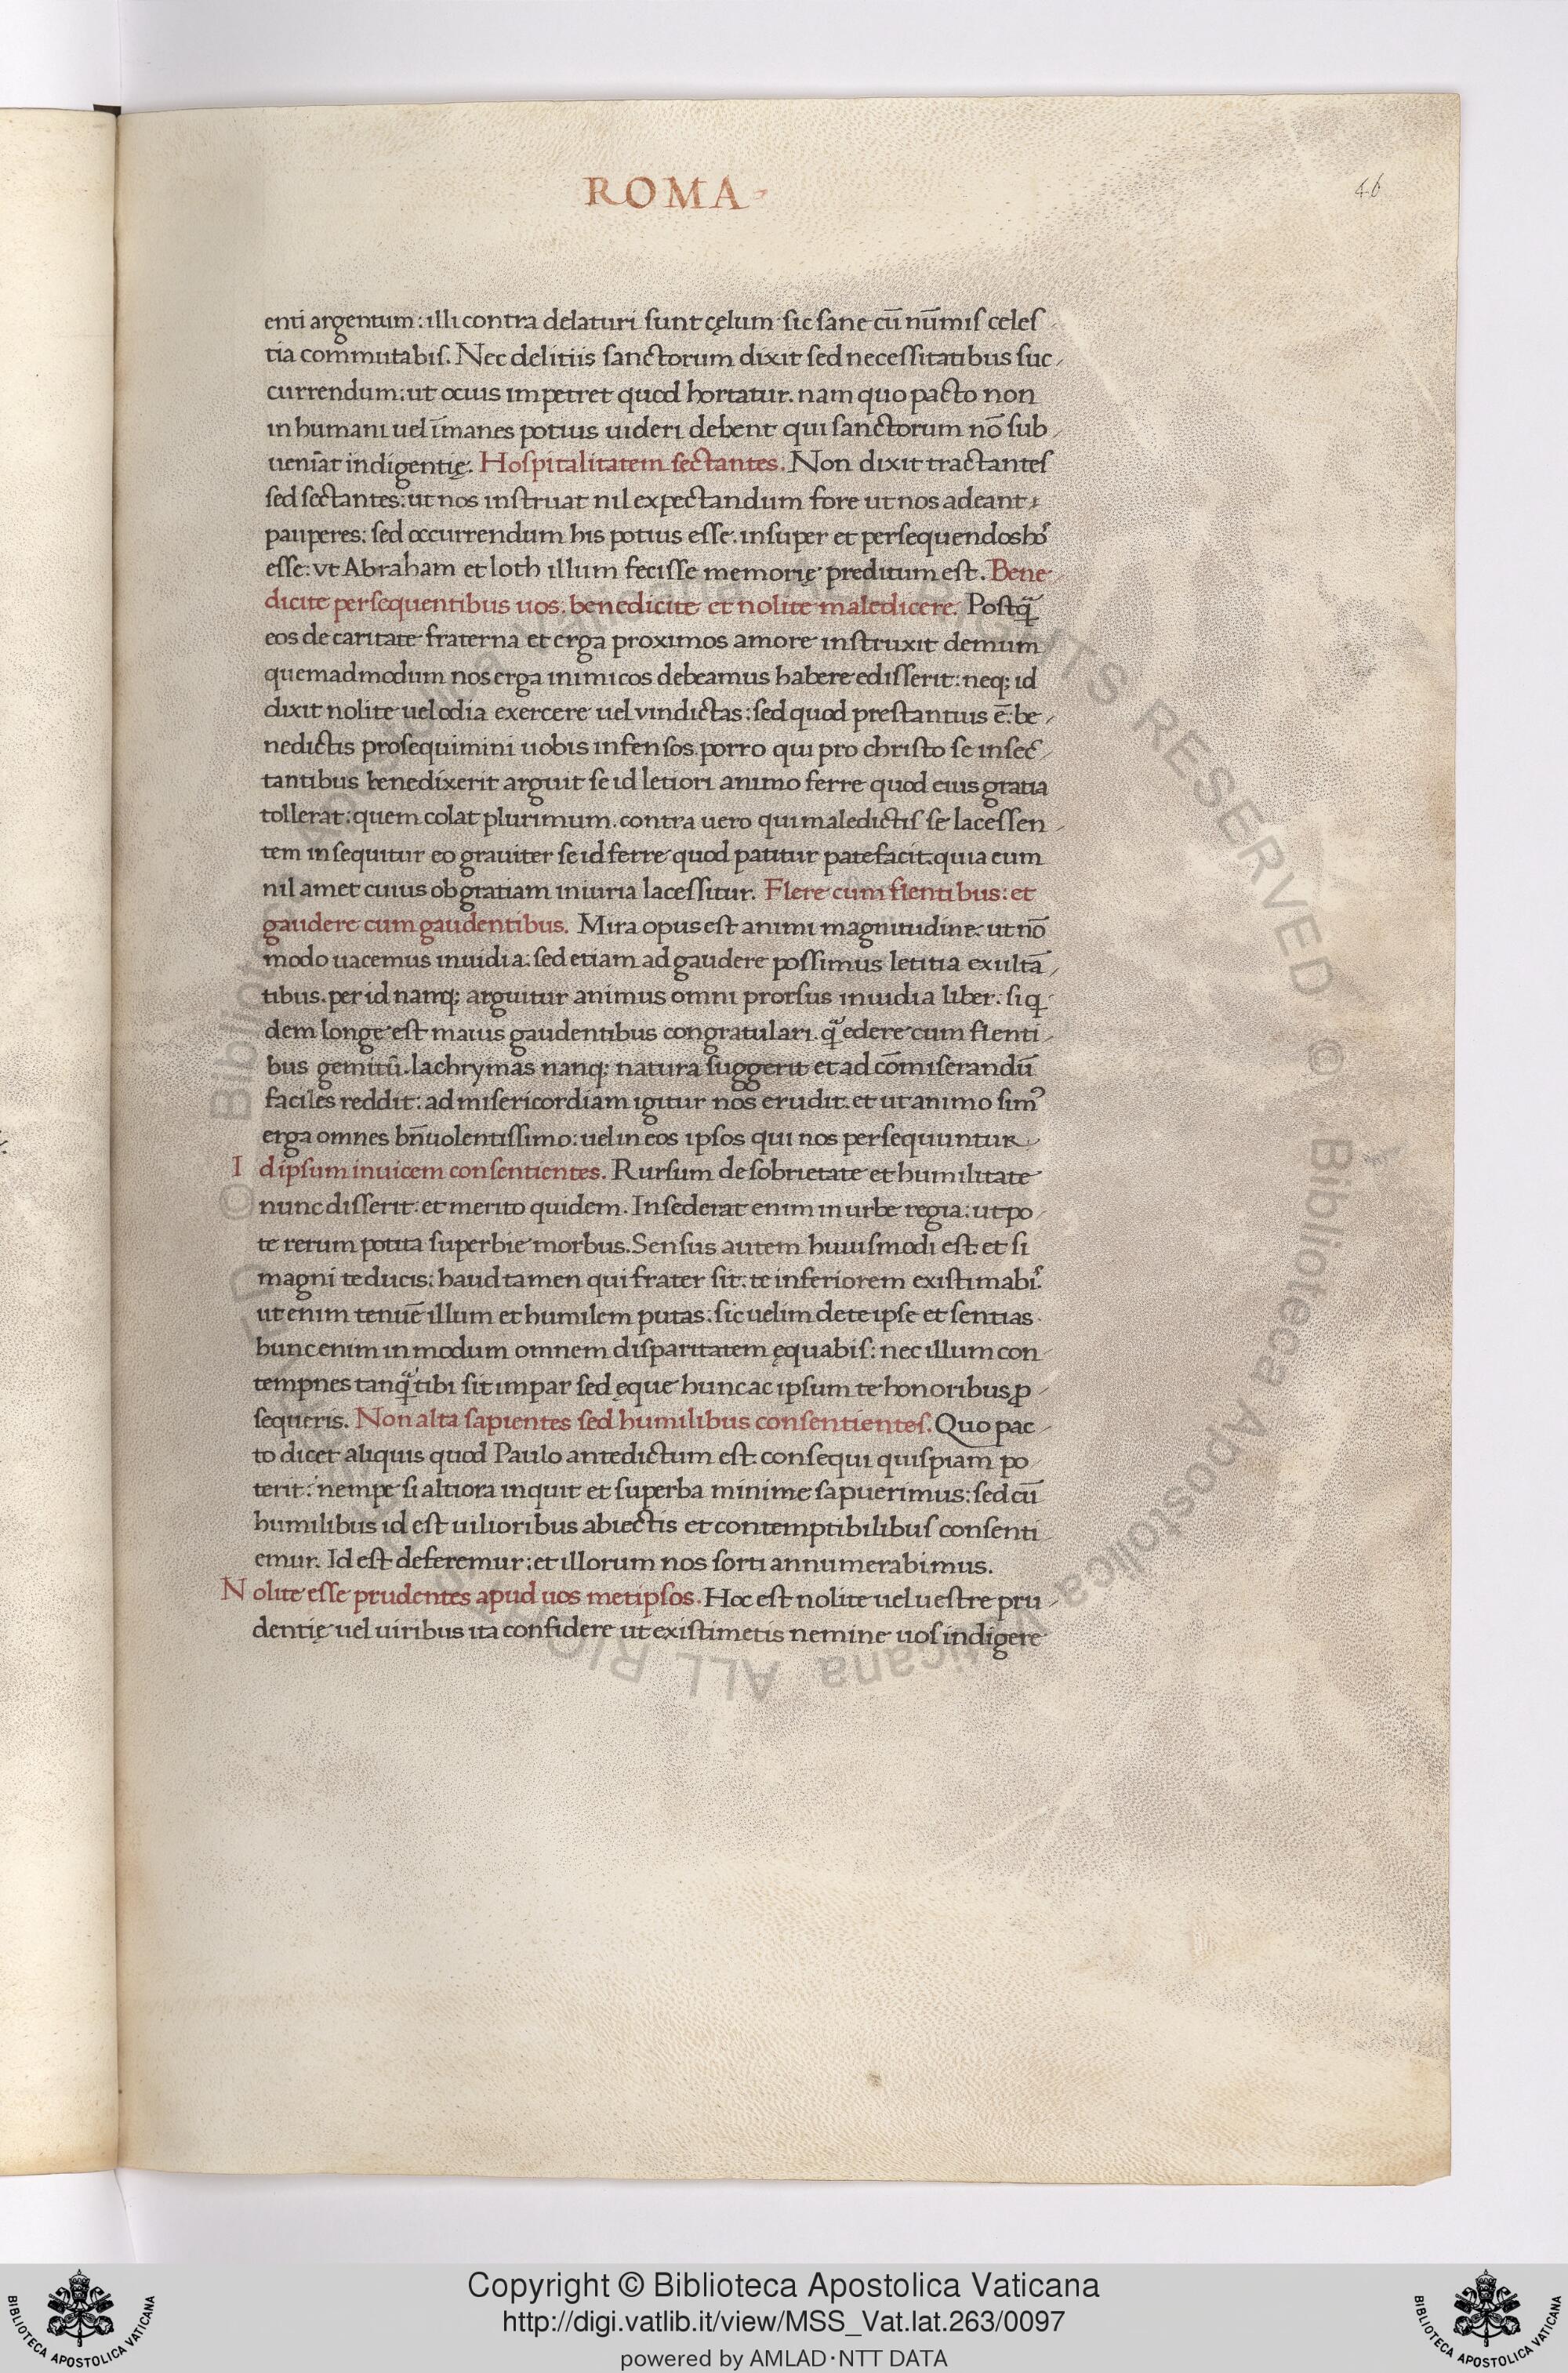 ROMA
46
enti argentum: illi contra delaturi sunt cęlum sic sane cū nūmis celes
tia commutabis. Nec delitiis sanctorum dixit sed necessitatibus suc
currendum: ut ocius impetret quod hortatur. nam quo pacto non
inhumani uel īmanes potius uideri debent qui sanctorum nō sub
ueniāt indigentię. Hospitalitatem sectantes. Non dixit tractantes
sed sectantes: ut nos instruat nil expectandum fore ut nos adeant
pauperes: sed occurrendum his potius esse. insuper et persequendos
esse: vt Abraham et loth illum fecisse memorię preditum est. Bene
dicite persequentibus uos. benedicite et nolite maledicere. Postq̄
eos de caritate fraterna et erga proximos amore instruxit demum
quemadmodum nos erga inimicos debeamus habere edisserit: neq; id
dixit nolite uel odia exercere uel vindictas: sed quod prestantius ē: be
nedictis prosequimini uobis infensos. porro qui pro christo se insec
tantibus benedixerit arguit se id letiori animo ferre quod eius gratia
tollerat: quem colat plurimum. contra uero qui maledictis se lacessen
tem insequitur eo grauiter se id ferre quod patitur patefacit. quia eum
nil amet cuius ob gratiam iniuria lacessitur. Flere cum flentibus: et
gaudere cum gaudentibus. Mira opus est animi magnitudine. ut nō
modo uacemus inuidia: sed etiam ad gaudere possimus letitia exultā
tibus. per id namq; arguitur animus omni prorsus inuidia liber. siq
dem longe est maius gaudentibus congratulari. q̄ edere cum flenti
bus gemitū. lachrymas nanq; natura suggerit et ad cōmiserandū
faciles reddit: ad misericordiam igitur nos erudit. et ut animo sim⁹
erga omnes bn̄uolentissimo: uel in eos ipsos qui nos persequuntur
I dipsum inuicem consentientes. Rursum de sobrietate et humilitate
nunc disserit: et merito quidem. Insederat enim in urbe regia: utpo
te rerum potita superbie morbus. Sensus autem huiusmodi est. et si
magni te ducis: haud tamen qui frater sit. te inferiorem existimabi⁹
ut enim tenuē illum et humilem putas: sic uelim de te ipse et sentias.
hunc enim in modum omnem disparitatem ęquabis: nec illum con
tempnes tanq̄ tibi sit impar sed ęque hunc ac ipsum te honoribus ꝓ
sequeris. Non alta sapientes sed humilibus consentientes. Quo pac
to dicet aliquis quod Paulo antedictum est. consequi quispiam po
terit: nempe si altiora inquit et superba minime sapuerimus: sed cū
humilibus id est uilioribus abiectis et contemptibilibus consenti
emur. Id est deferemur: et illorum nos sorti annumerabimus.
N olite esse prudentes apud uos metipsos. Hoc est nolite uel uestre pru
dentię uel uiribus ita confidere ut existimetis nemine uos indigere
© Biblioteca Apostolica Vaticana ALL RIGHTS RESERVED © Biblioteca Apostolica Vaticana ALL RIGHTS RESERVED
BIBLIOTECA APOSTOLICA VATICANA
Copyright © Biblioteca Apostolica Vaticana
http://digi.vatlib.it/view/MSS_Vat.lat.263/0097
powered by AMLAD·NTT DATA
BIBLIOTECA APOSTOLICA VATICANA